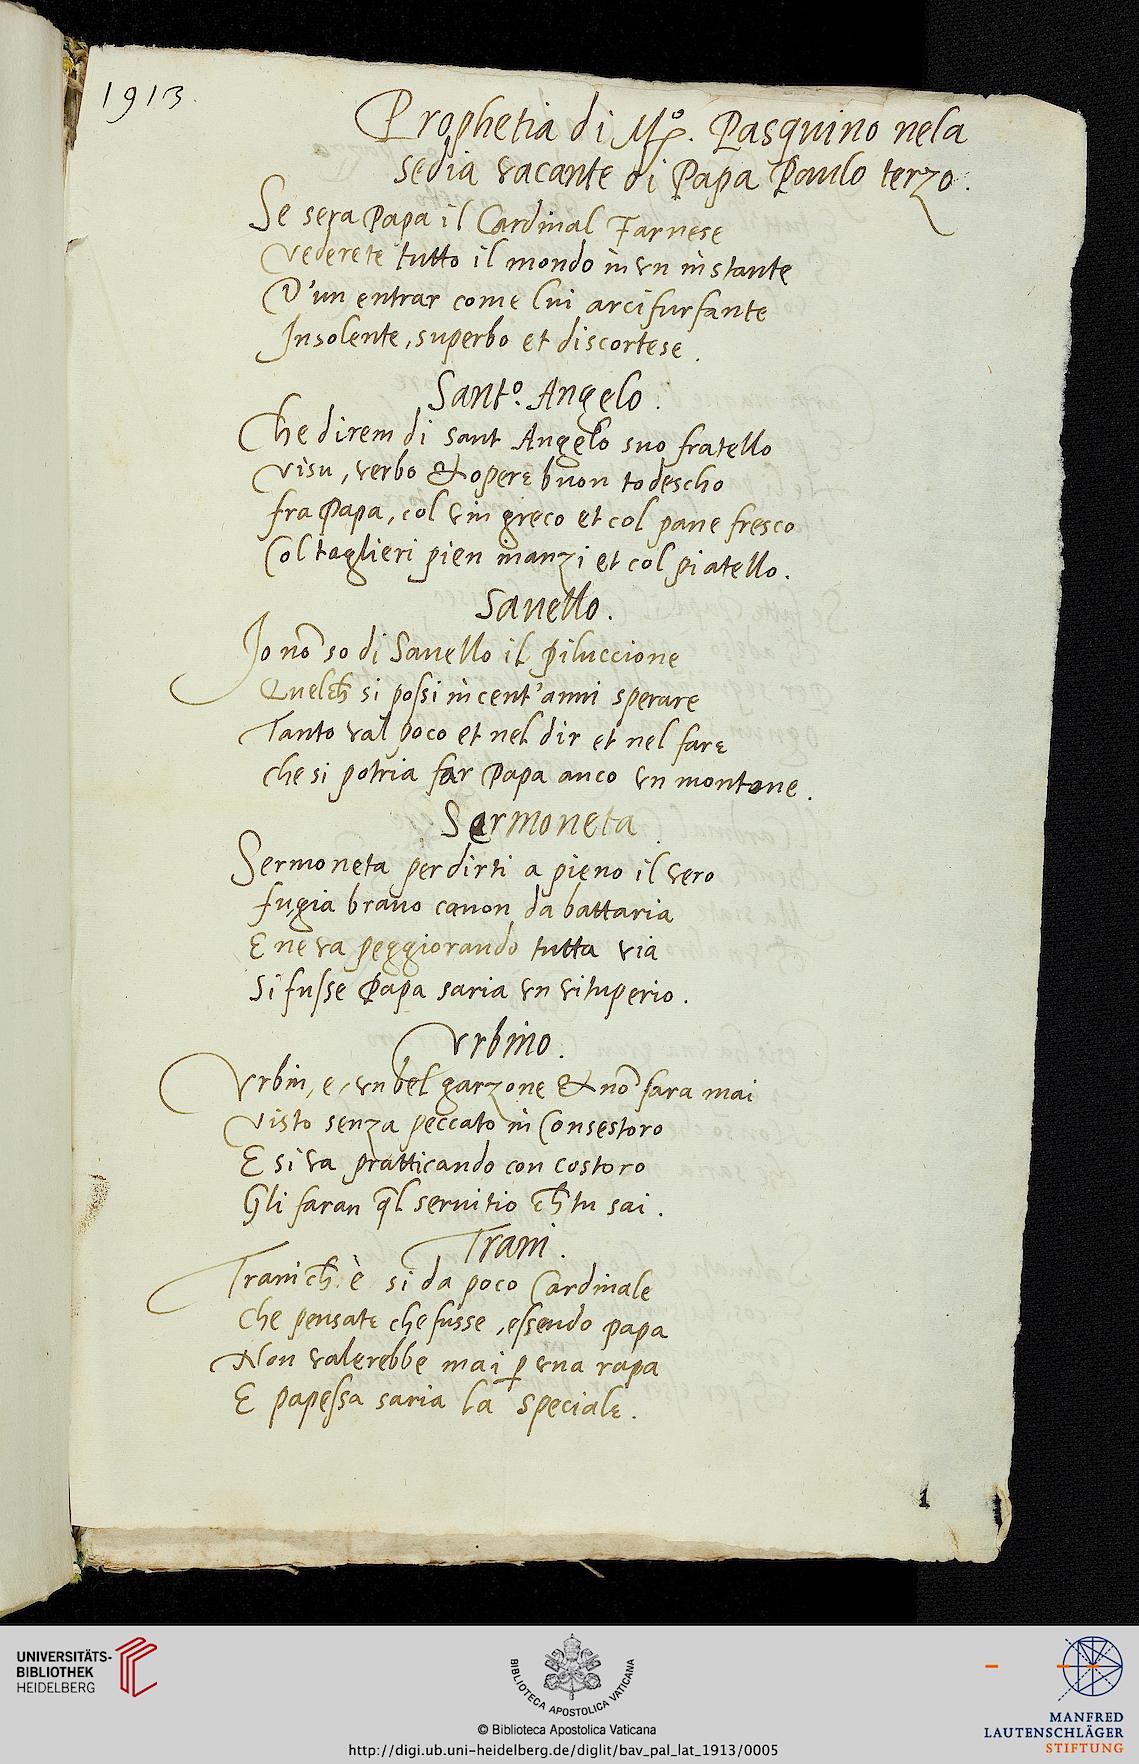 1913
Prophetia di Mro. Pasquino nela
sedia vacante di Papa Paulo terzo.
Se sera Papa il Cardinal Farnese
Vederete tutto il mondo in vn instante
D'un entrar come lui arcifurfante
Insolente, superbo et discortese.
Santo. Angelo.
Che direm di sant Angelo suo fratello
Visu, verbo & opere buon todescho
fra Papa, col vin greco et col pane fresco
Col taglieri pien inanzi et col piatello.
Sauello.
Io nõ so di Sauello il piluccione
Quelch̃ si possi in cent'anni sperare
Tanto val poco et nel dir et nel fare
che si potria far Papa anco vn montone.
Sermoneta
Sermoneta per dirti a pieno il vero
fu gia brauo canon da battaria
E ne va peggiorando tutta via
Si fusse Papa saria vn vituperio.
Vrbino.
Vrbin, e, vn bel garzone & nõ sara mai
Visto senza peccato in Consestoro
E si va pratticando con costoro
Gli faran q̃l seruitio ch̃ tu sai.
Trani.
Trani ch̃ è si da poco Cardinale
Che pensate che fusse, essendo papa
Non valerebbe mai p vna rapa
E papessa saria la speciale.
1
UNIVERSITÄTS-
BIBLIOTHEK
HEIDELBERG
BIBLIOTECA APOSTOLICA VATICANA
© Biblioteca Apostolica Vaticana
http://digi.ub.uni-heidelberg.de/diglit/bav_pal_lat_1913/0005
MANFRED
LAUTENSCHLÄGER
STIFTUNG